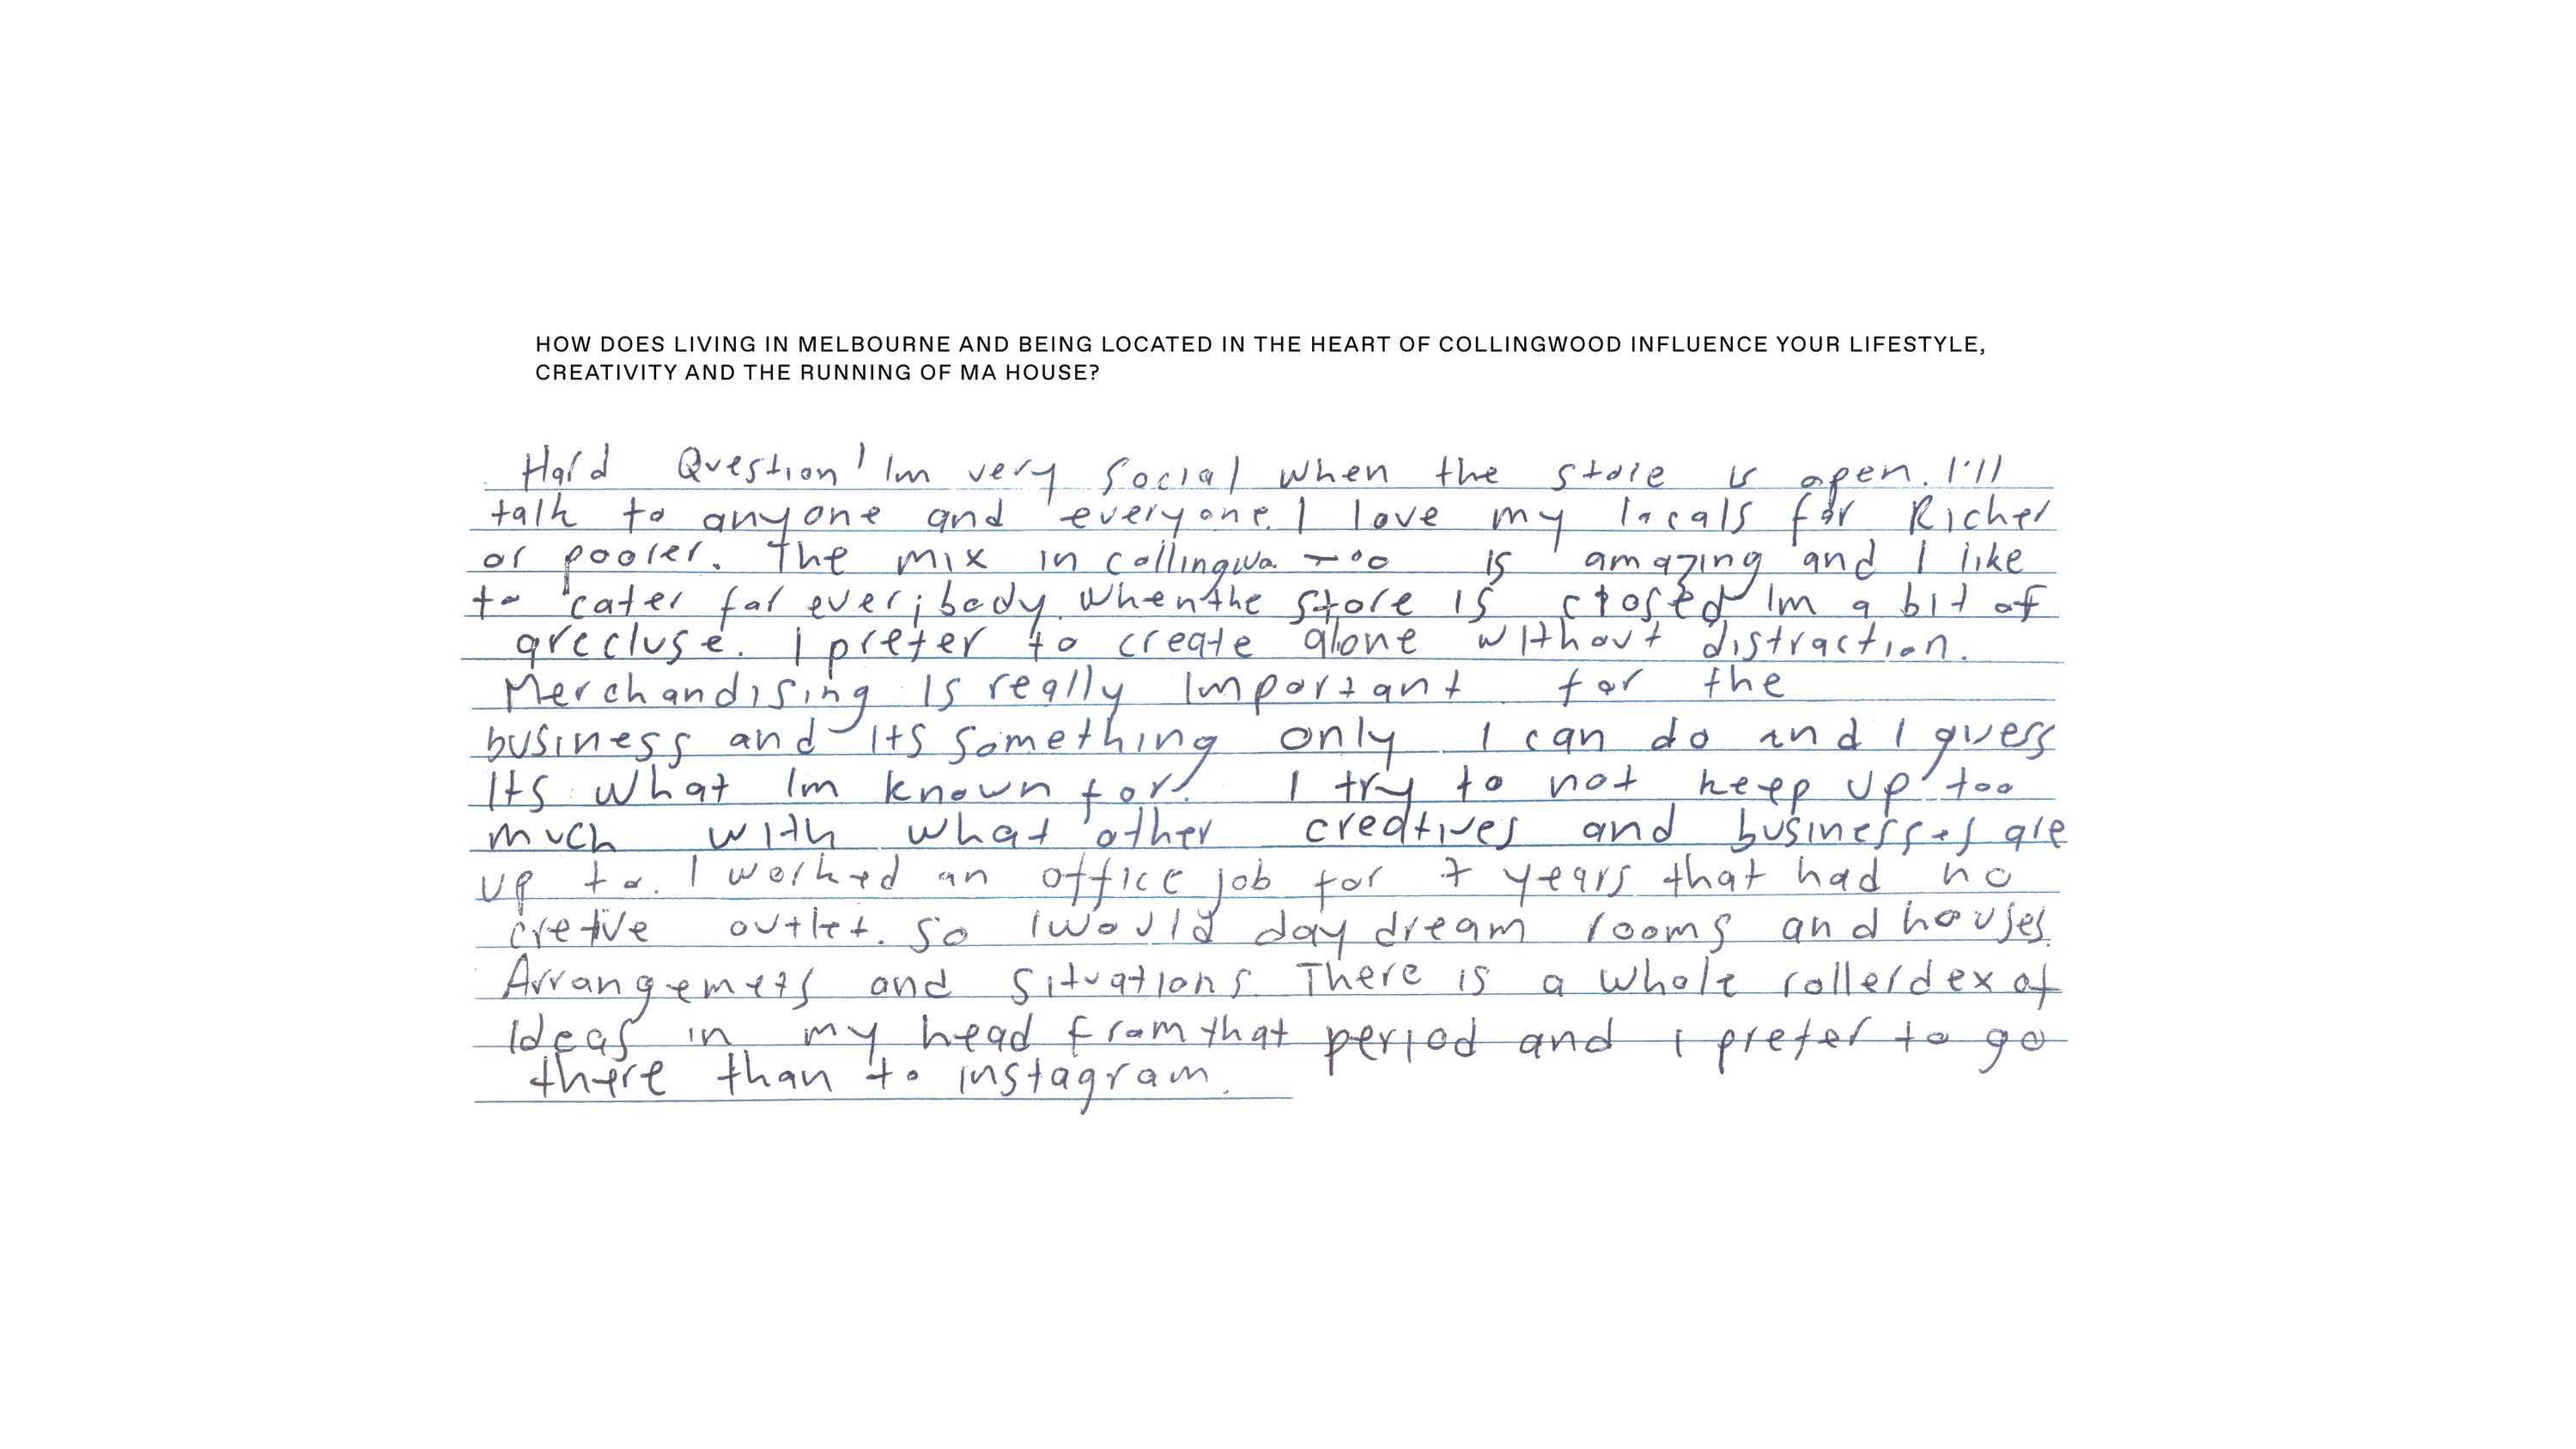 HOW DOES LIVING IN MELBOURNE AND BEING LOCATED IN THE HEART OF COLLINGWOOD INFLUENCE YOUR LIFESTYLE,
CREATIVITY AND THE RUNNING OF MA HOUSE?
Hard Question! Im very social when the store is open. I'll
talk to anyone and everyone. I love my locals for Richer
or poorer. The mix in is amazing and I like
to cater for everybody. When the store is closed Im a bit of
a recluse. I prefer to create alone without distraction.
Merchandising is really important for the
business and its something only I can do and I guess
Its what Im known for. I try to not keep up too
much with what other creatives and businesses are
up to. I worked an office job for 7 years that had no
cretive outlet. So I would day dream rooms and houses.
Arrangemets and situations. There is a whole rollerdex of
Ideas in my head from that period and I prefer to go
there than to instagram.